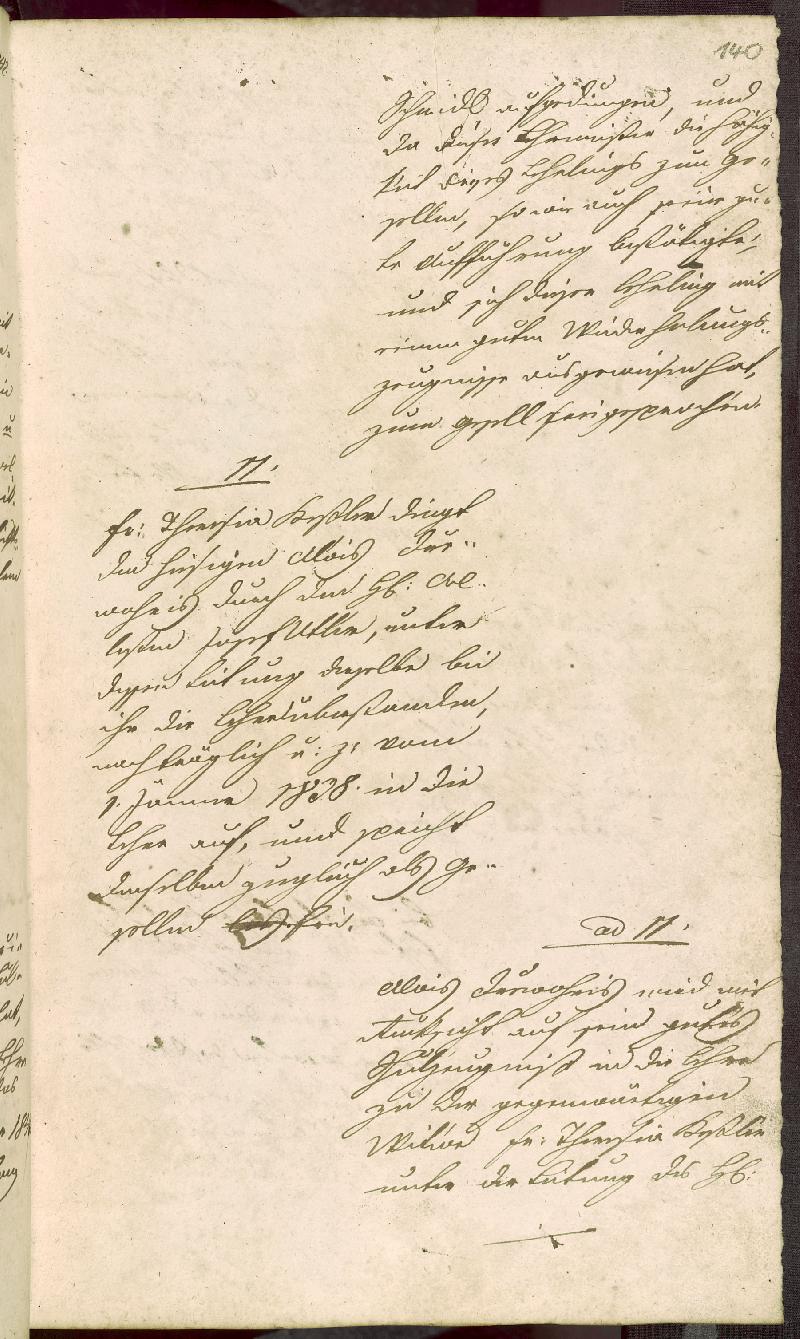 140
Schmidt aufgedungen, und
da dieser Lehrmeister die Fähig-
keit dieses Lehrlings zum Ge-
sellen, so wie auch seine gu-
te Aufführung bestätigte,
und sich dieser Lehrling mit
einem guten Wiederholungs-
zeugnisse ausgewiesen hat,
zum Gesell freigesprochen.
11.
Fr: Theresia Kessler dingt
den hiesigen Alois
durch den Hb: Ae-
ltesten Josef Adler, unter
dessen Leitung derselbe bei
ihr die Lehre überstanden,
nachträglich u: z: vom
1. Jänner 1838. in die
Lehre auf, und spricht
denselben zugleich als Ge-
sellen frei.
ad 11.
Alois wird mit
Rücksicht auf sein gutes
Schulzeugniß in die Lehre
zu der gegenwärtigen
Witwe Fr: Theresia Kessler
unter der Leitung des Hb: